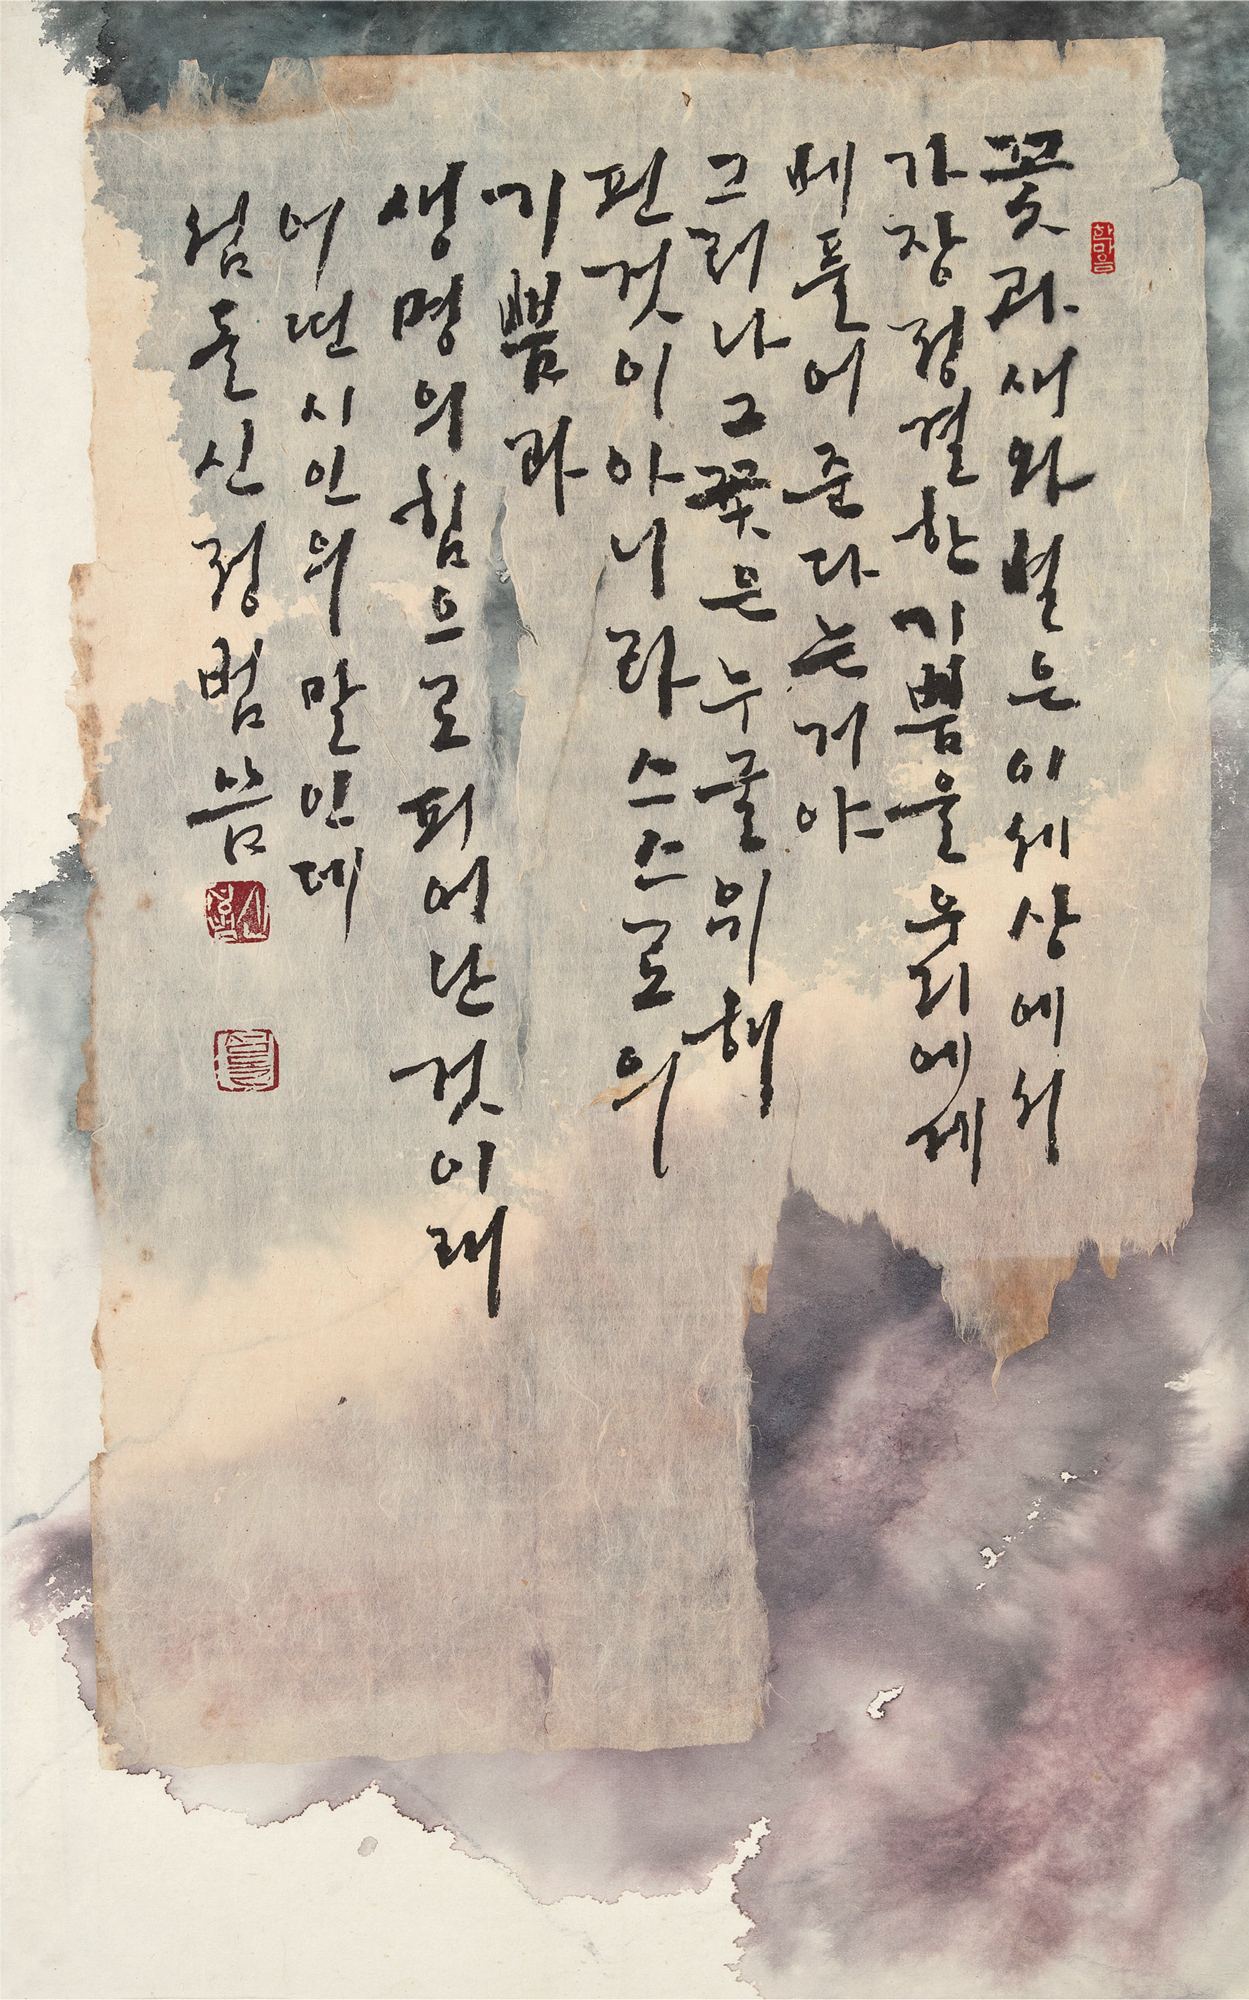 한마음
꽃과 새와 별은 이 세상에서
가장 정결한 기쁨을 우리에게
베풀어 준다는 거야
그러나 그 꽃은 누굴 위해
핀 것이 아니라 스스로의
기쁨과
생명의 힘으로 피어난 것이래
어떤 시인의 말인데
섬돌 신정범 씀